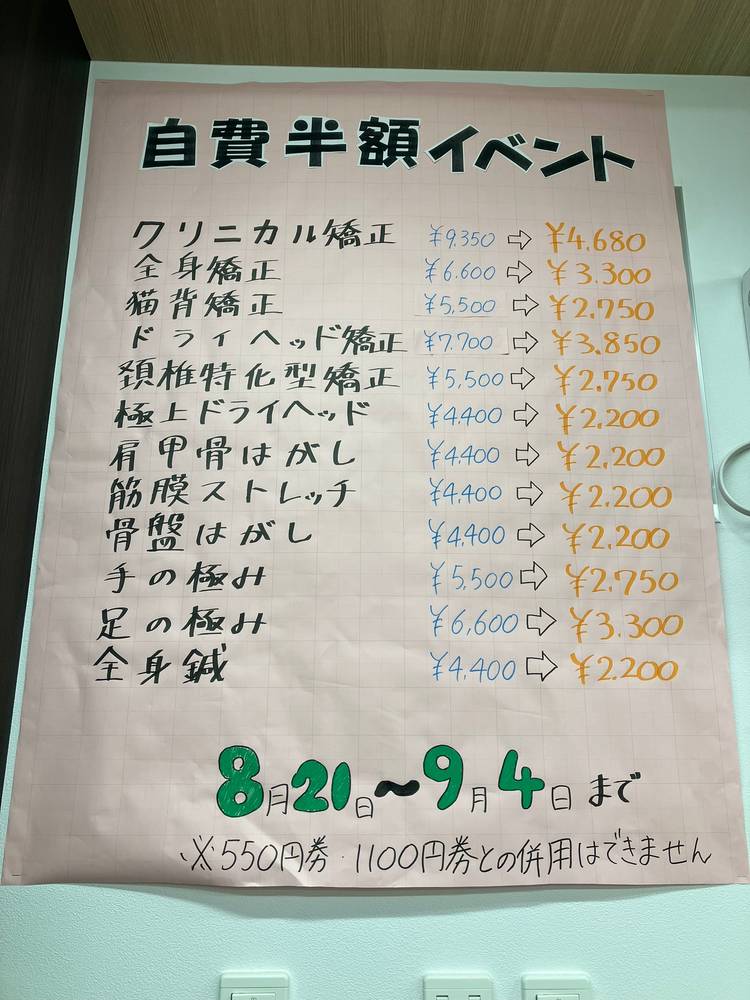 自費半額イベント
クリニカル矯正 ¥9,350 ⇨ ¥4,680
全身矯正 ¥6,600 ⇨ ¥3,300
猫背矯正 ¥5,500 ⇨ ¥2,750
ドライヘッド矯正 ¥7,700 ⇨ ¥3,850
頚椎特化型矯正 ¥5,500 ⇨ ¥2,750
極上ドライヘッド ¥4,400 ⇨ ¥2,200
肩甲骨はがし ¥4,400 ⇨ ¥2,200
筋膜ストレッチ ¥4,400 ⇨ ¥2,200
骨盤はがし ¥4,400 ⇨ ¥2,200
手の極み ¥5,500 ⇨ ¥2,750
足の極み ¥6,600 ⇨ ¥3,300
全身鍼 ¥4,400 ⇨ ¥2,200
8月21日〜9月4日まで
※550円券・1100円券との併用はできません